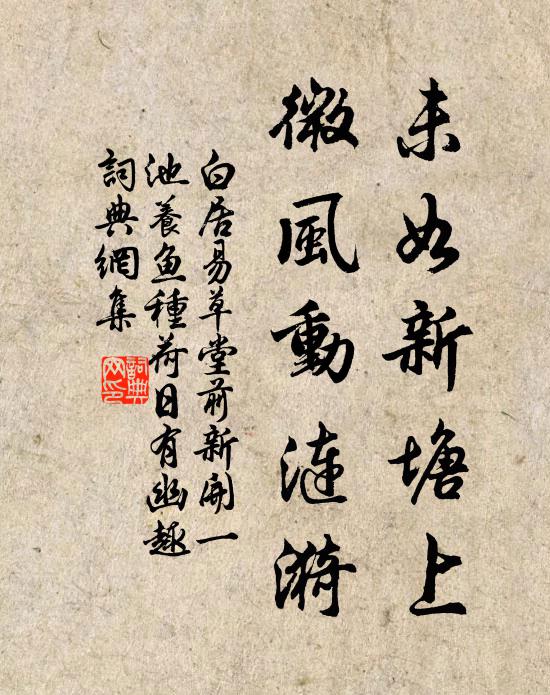 未如新塘上
微風動漣漪
白居易草堂前新開一
池養魚種荷日有幽趣
詞典網集
詞典
网印